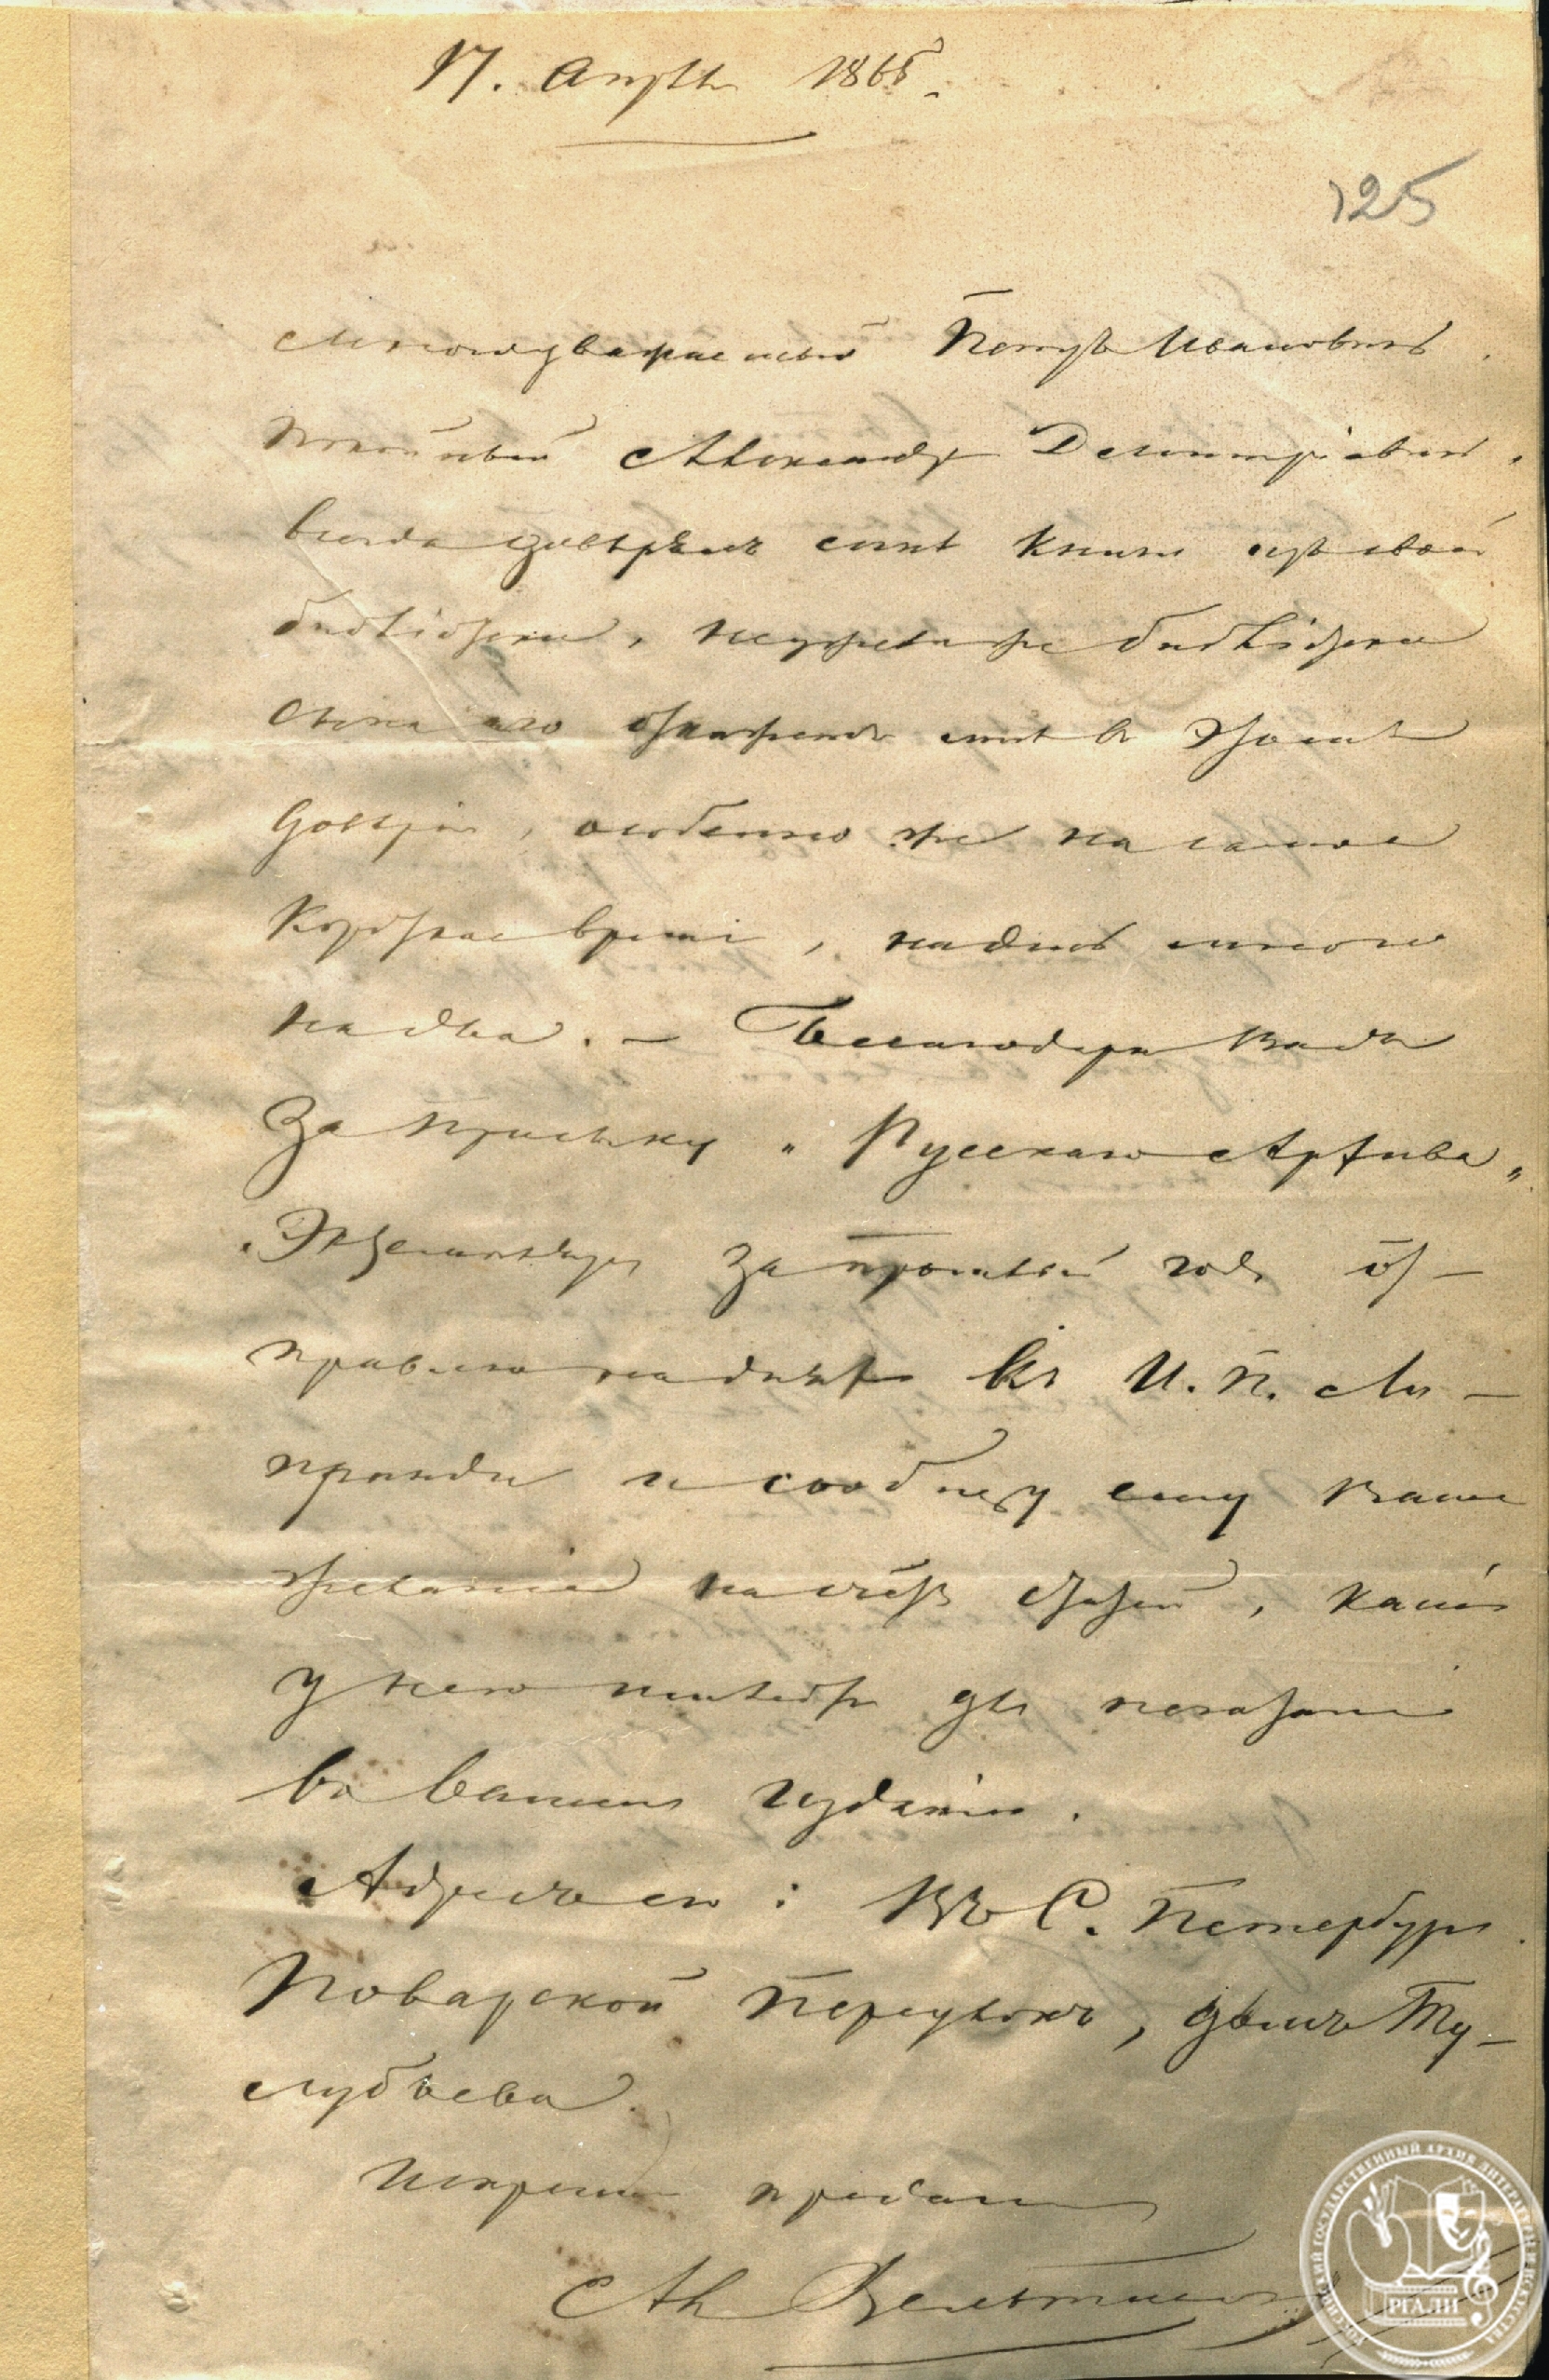 17. Апрѣля 1868.
125
Многоуважаемый Петръ Ивановичъ.
Покойный Александръ Дмитріевичъ,
всегда довѣрялъ мнѣ книги изъ своей
библіотеки, неужели же библіотека
сына его откажетъ мнѣ въ этомъ
довѣріи, особенно же на самое
короткое время, на день много
на два. — Благодарю Васъ
за присылку „Русскаго Архива„
Экземпляръ за прошлый годъ от-
правлю на дняхъ къ И. П. Ли-
пранди и сообщу ему Ваше
желаніе насчетъ статей, какія
у него имѣются для печатанія
въ Вашемъ изданіи.
Адресъ его: Въ С. Петербургѣ.
Поварской Переулокъ, домъ Ту-
лубьева.
Искренно преданный
Ал Вельтманъ
РОССИЙСКИЙ ГОСУДАРСТВЕННЫЙ АРХИВ ЛИТЕРАТУРЫ И ИСКУССТВА
РГАЛИ